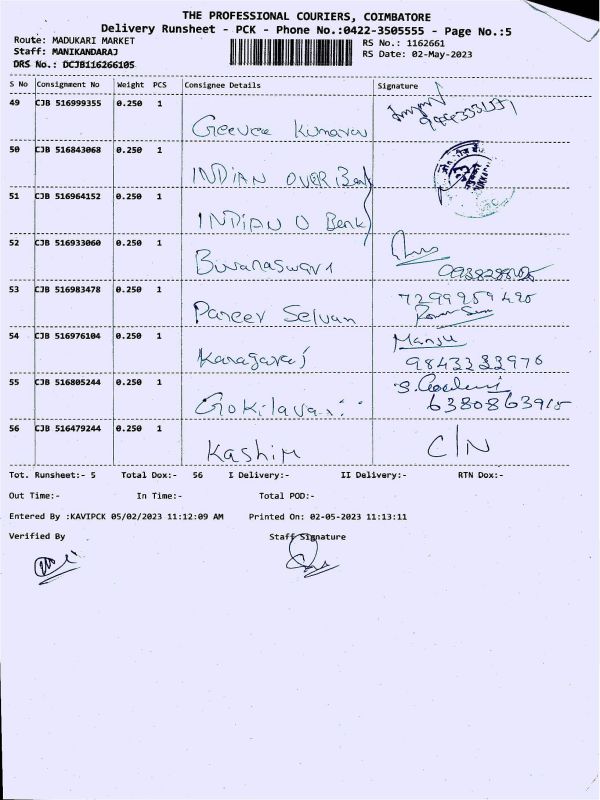 THE PROFESSIONAL COURIERS, COIMBATORE
Delivery Runsheet - PCK - Phone No.:0422-3505555 - Page No.:5
Route: MADUKARI MARKET RS No.: 1162661
Staff: MANIKANDARAJ RS Date: 02-May-2023
DRS No.: DCJB116266105
S No Consignment No Weight PCS Consignee Details Signature
49 CJB 516999355 0.250 1
Geevee Kumaran
50 CJB 516843068 0.250 1
INDIAN OVER Bank
51 CJB 516964152 0.250 1
INDIAN O Bank
52 CJB 516933060 0.250 1
Buvanaswari
53 CJB 516983478 0.250 1 7299959490
Paneer Selvam
54 CJB 516976104 0.250 1 Manju
Karagaraj 9843222976
55 CJB 516805244 0.250 1
Gokilavani 6380863915
56 CJB 516479244 0.250 1
Kashim C/N
Tot. Runsheet:- 5 Total Dox:- 56 I Delivery:- II Delivery:- RTN Dox:-
Out Time:- In Time:- Total POD:-
Entered By :KAVIPCK 05/02/2023 11:12:09 AM Printed On: 02-05-2023 11:13:11
Verified By Staff Signature